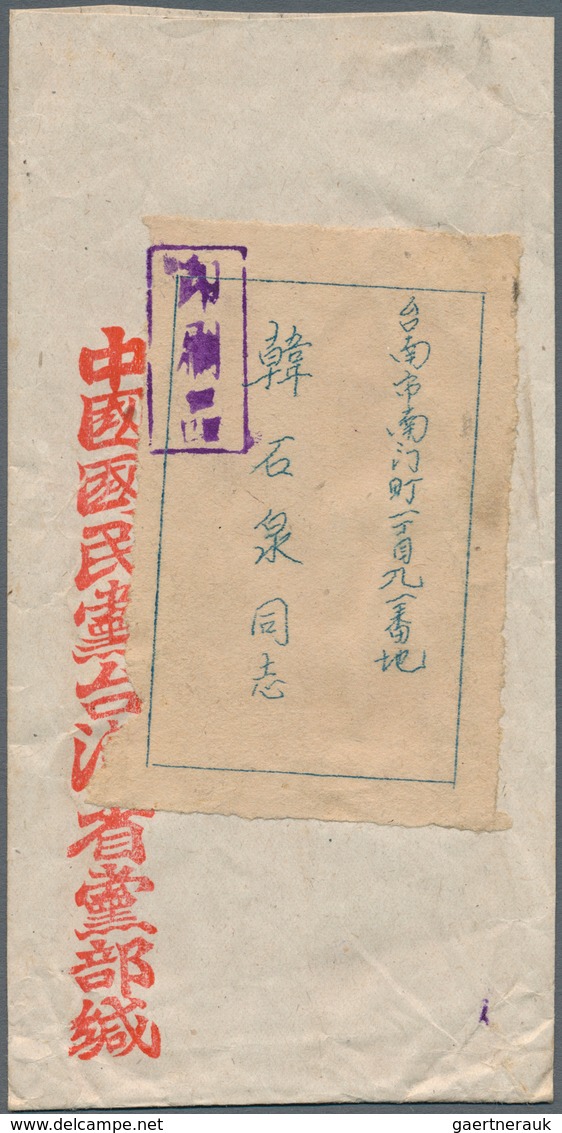 台南市南门町一丁目九一番地
韓石泉同志
印刷品
中國國民黨台湾省黨部缄
gaertnerauk